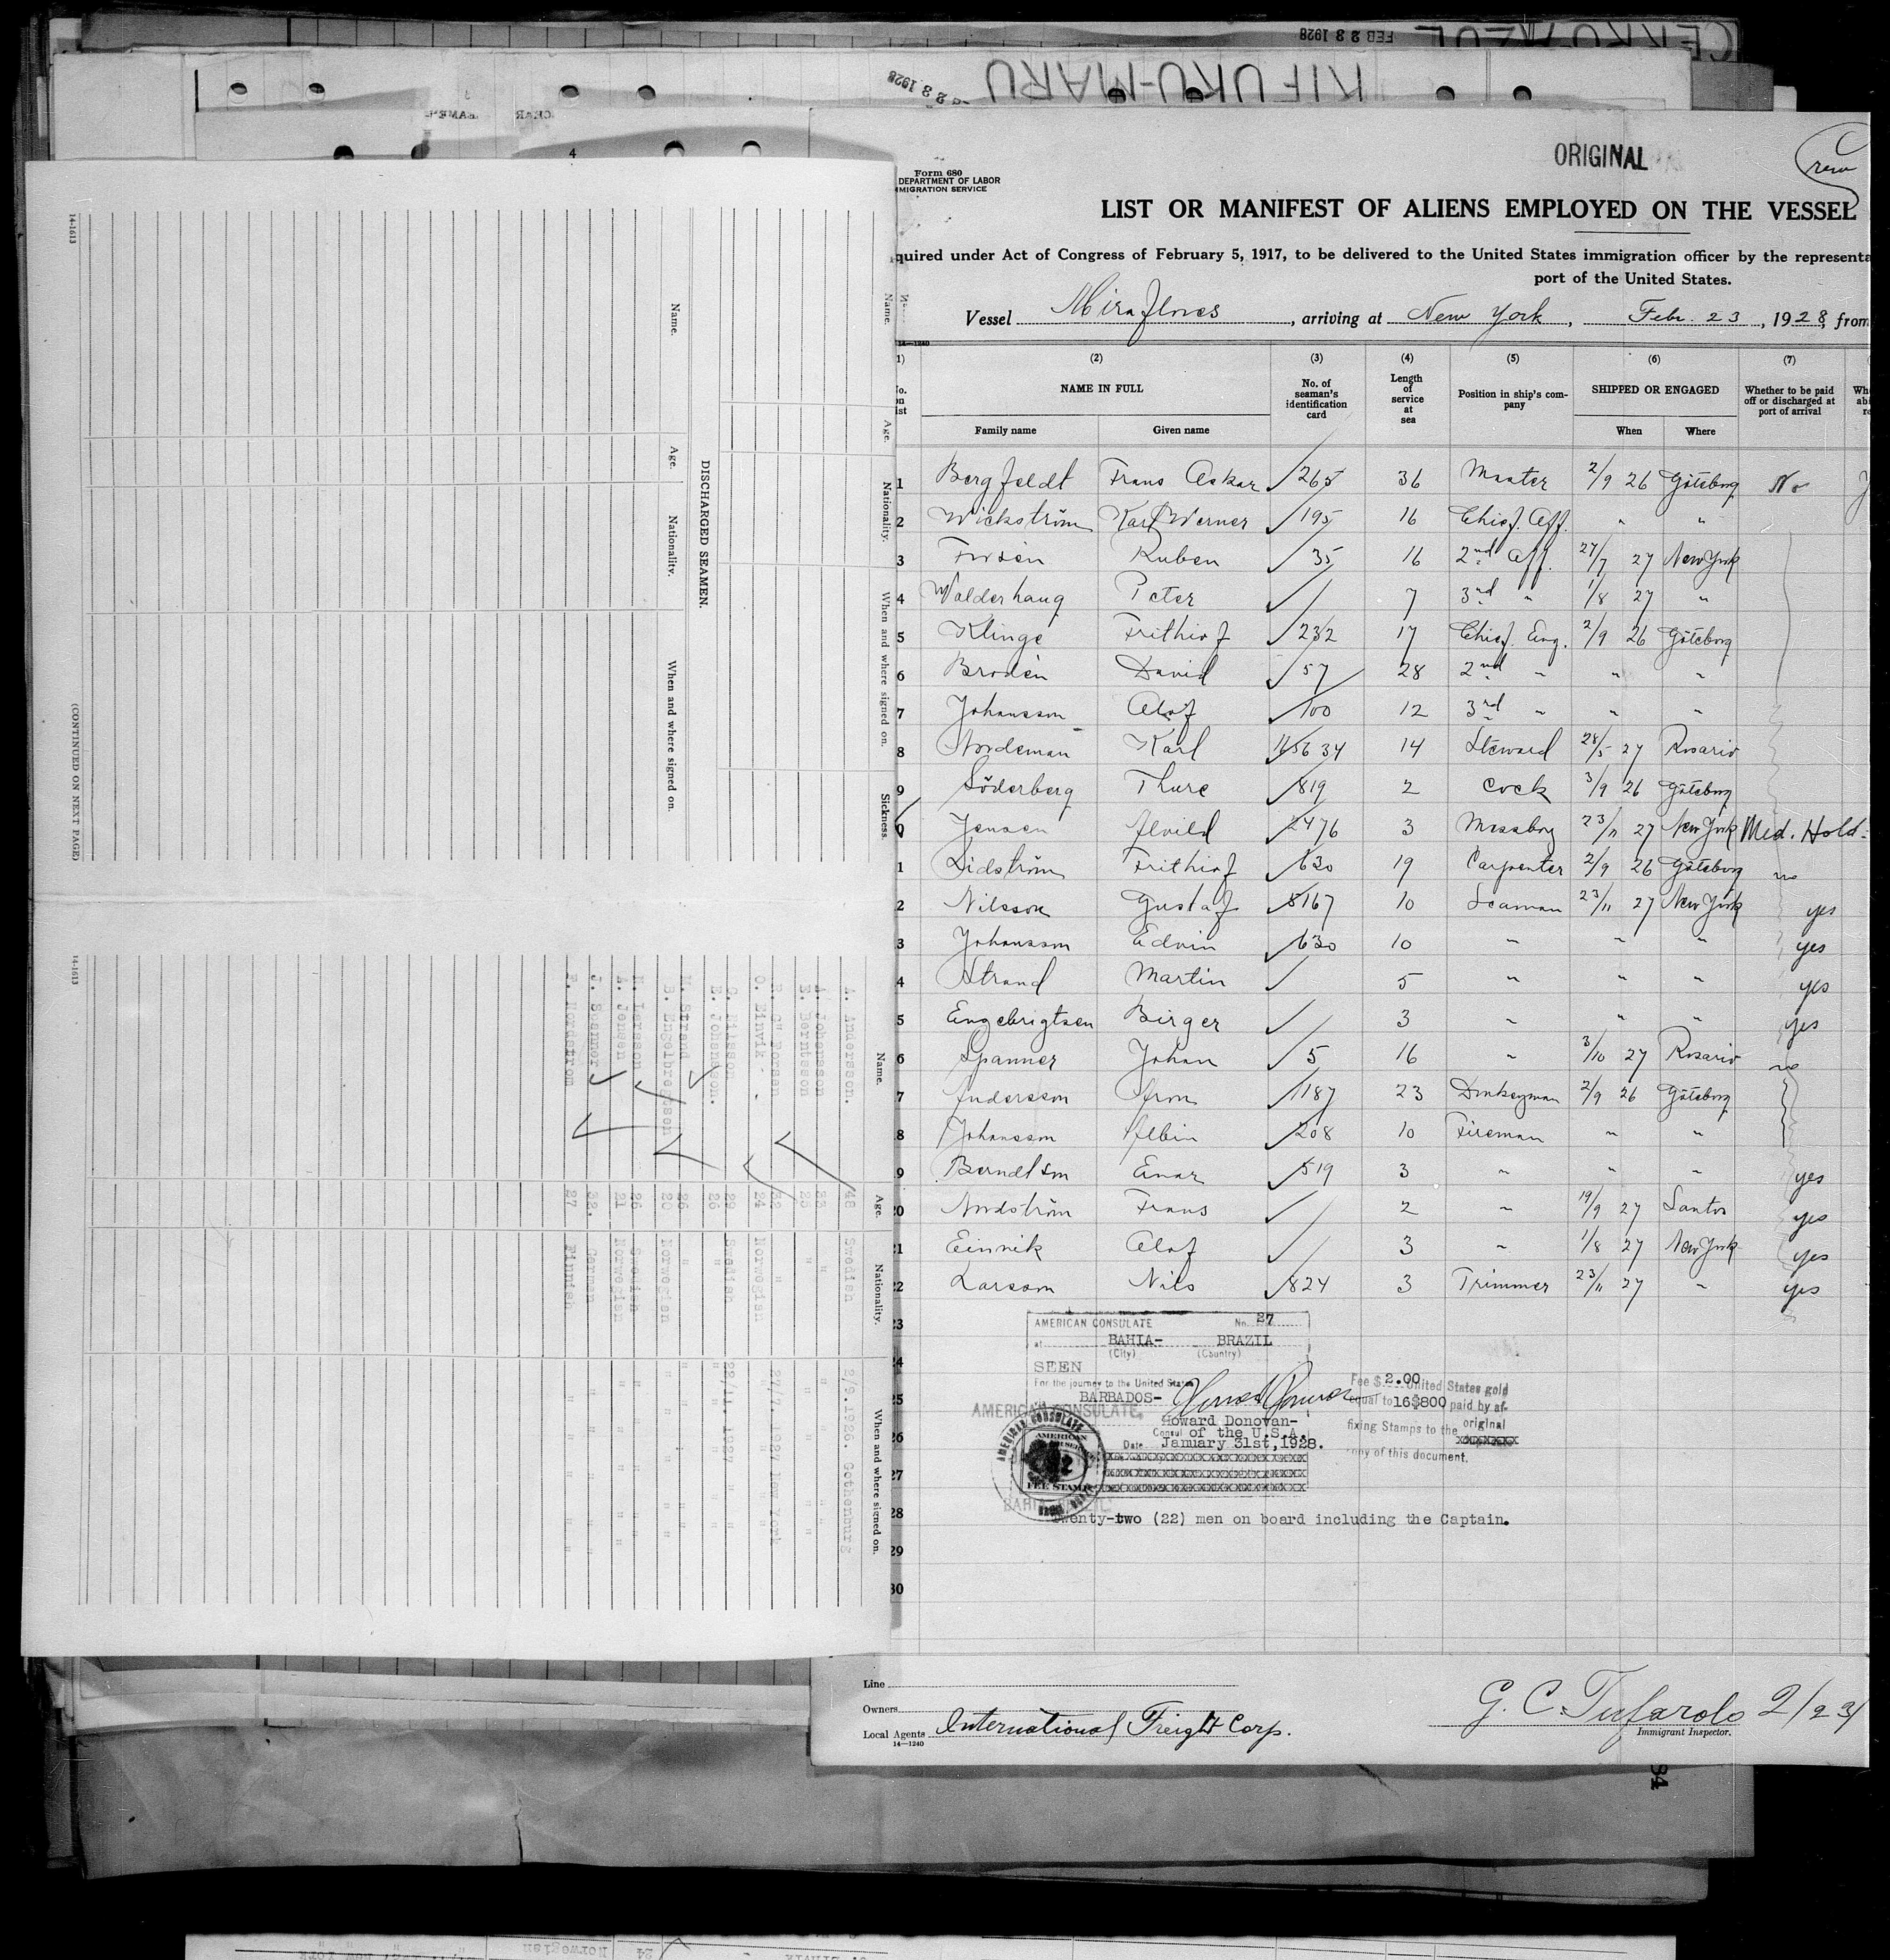 CERRO AZUL FEB 23 1928
KIFUKU-MARU
ORIGINAL
Crew
Form 680
DEPARTMENT OF LABOR
MIGRATION SERVICE
LIST OR MANIFEST OF ALIENS EMPLOYED ON THE VESSEL
quired under Act of Congress of February 5, 1917, to be delivered to the United States immigration officer by the representa
port of the United States.
Vessel Miraflores, arriving at New York, Febr. 23, 1928, from
14—1240
(2) (3) (4) (5) (6) (7)
NAME IN FULL No. of seaman's identification card Length of service at sea Position in ship's company SHIPPED OR ENGAGED Whether to be paid off or discharged at port of arrival
Family name Given name When Where
1 Bergfeldt Frans Oskar 265 36 Master 2/9 26 Göteborg No
2 Wickström Karl Werner 195 16 Chief. Off. " "
3 Ruben 35 16 2nd Off. 27/7 27 New York
4 Walderhaug Peter 7 3rd " 1/8 27 "
5 Klinge Frithiof 232 17 Chief. Eng. 2/9 26 Göteborg
6 Brodén David 57 28 2nd " " "
7 Johansson Olof 100 12 3rd " " "
8 Nordeman Karl 165634 14 Steward 28/5 27 Rosario
9 Söderberg Thure 819 2 Cock 3/9 26 Göteborg
0 Jensen Alvild 2476 3 Messboy 23/11 27 New York Med. Hold-
1 Lidström Frithiof 630 19 Carpenter 2/9 26 Göteborg no
2 Nilsson Gustaf 8167 10 Seaman 23/11 27 New York yes
3 Johansson Edvin 630 10 " " " yes
4 Strand Martin 5 " " " yes
5 Engebrigtsen Birger 3 " " " yes
6 Spanner Johan 5 16 " 3/10 27 Rosario no
7 Andersson Aron 1187 23 Donkeyman 2/9 26 Göteborg
8 Johansson Albin 208 10 Fireman " "
9 Berndtson Enar 519 3 " " " yes
20 Nordström Frans 2 " 19/9 27 Santos yes
21 Einvik Olof 3 " 1/8 27 New York yes
22 Larsson Nils 824 3 Trimmer 23/11 27 " yes
23
24
25
26
27
28
29
30
AMERICAN CONSULATE No. 27
at BAHIA- BRAZIL
(City) (Country)
SEEN
For the journey to the United States
BARBADOS-
AMERICAN CONSULATE,
Howard Donovan-
Consul of the U.S.A.
Date January 31st, 1928.
Fee $ 2.00 United States gold
equal to 16$800 paid by af-
fixing Stamps to the original
copy of this document.
AMERICAN CONSULATE
FEE STAMP
BAHIA BRAZIL
Twenty-two (22) men on board including the Captain.
Line
Owners
Local Agents International Freight Corp.
14—1240
G. C. Tufarolo 2/23/
Immigrant Inspector.
14-1613
(CONTINUED ON NEXT PAGE)
DISCHARGED SEAMEN.
Name. Age. Nationality. When and where signed on.
Name. Age. Nationality. When and where signed on. Sickness.
14-1613
Name. Age. Nationality. When and where signed on.
A. Andersson. 48 Swedien 2/9.1926. Gothenburg
A. Johansson 33 " " "
E. Berntsson 25 " " "
32 " 27/7.1927 New York
O. Einvik. 24 Norwegian " "
G. Nilsson 29 Swedish 23/11.1927 "
E. Johansson. 26 " " "
M. Strand 26 " " "
B. Engelbregtson 20 Norwegian " "
N. Larsson 26 Swedish " "
A. Jensen 21 Norwegian " "
J. Spanner 32. German " "
F. Nordstrom 27 Finnish " "